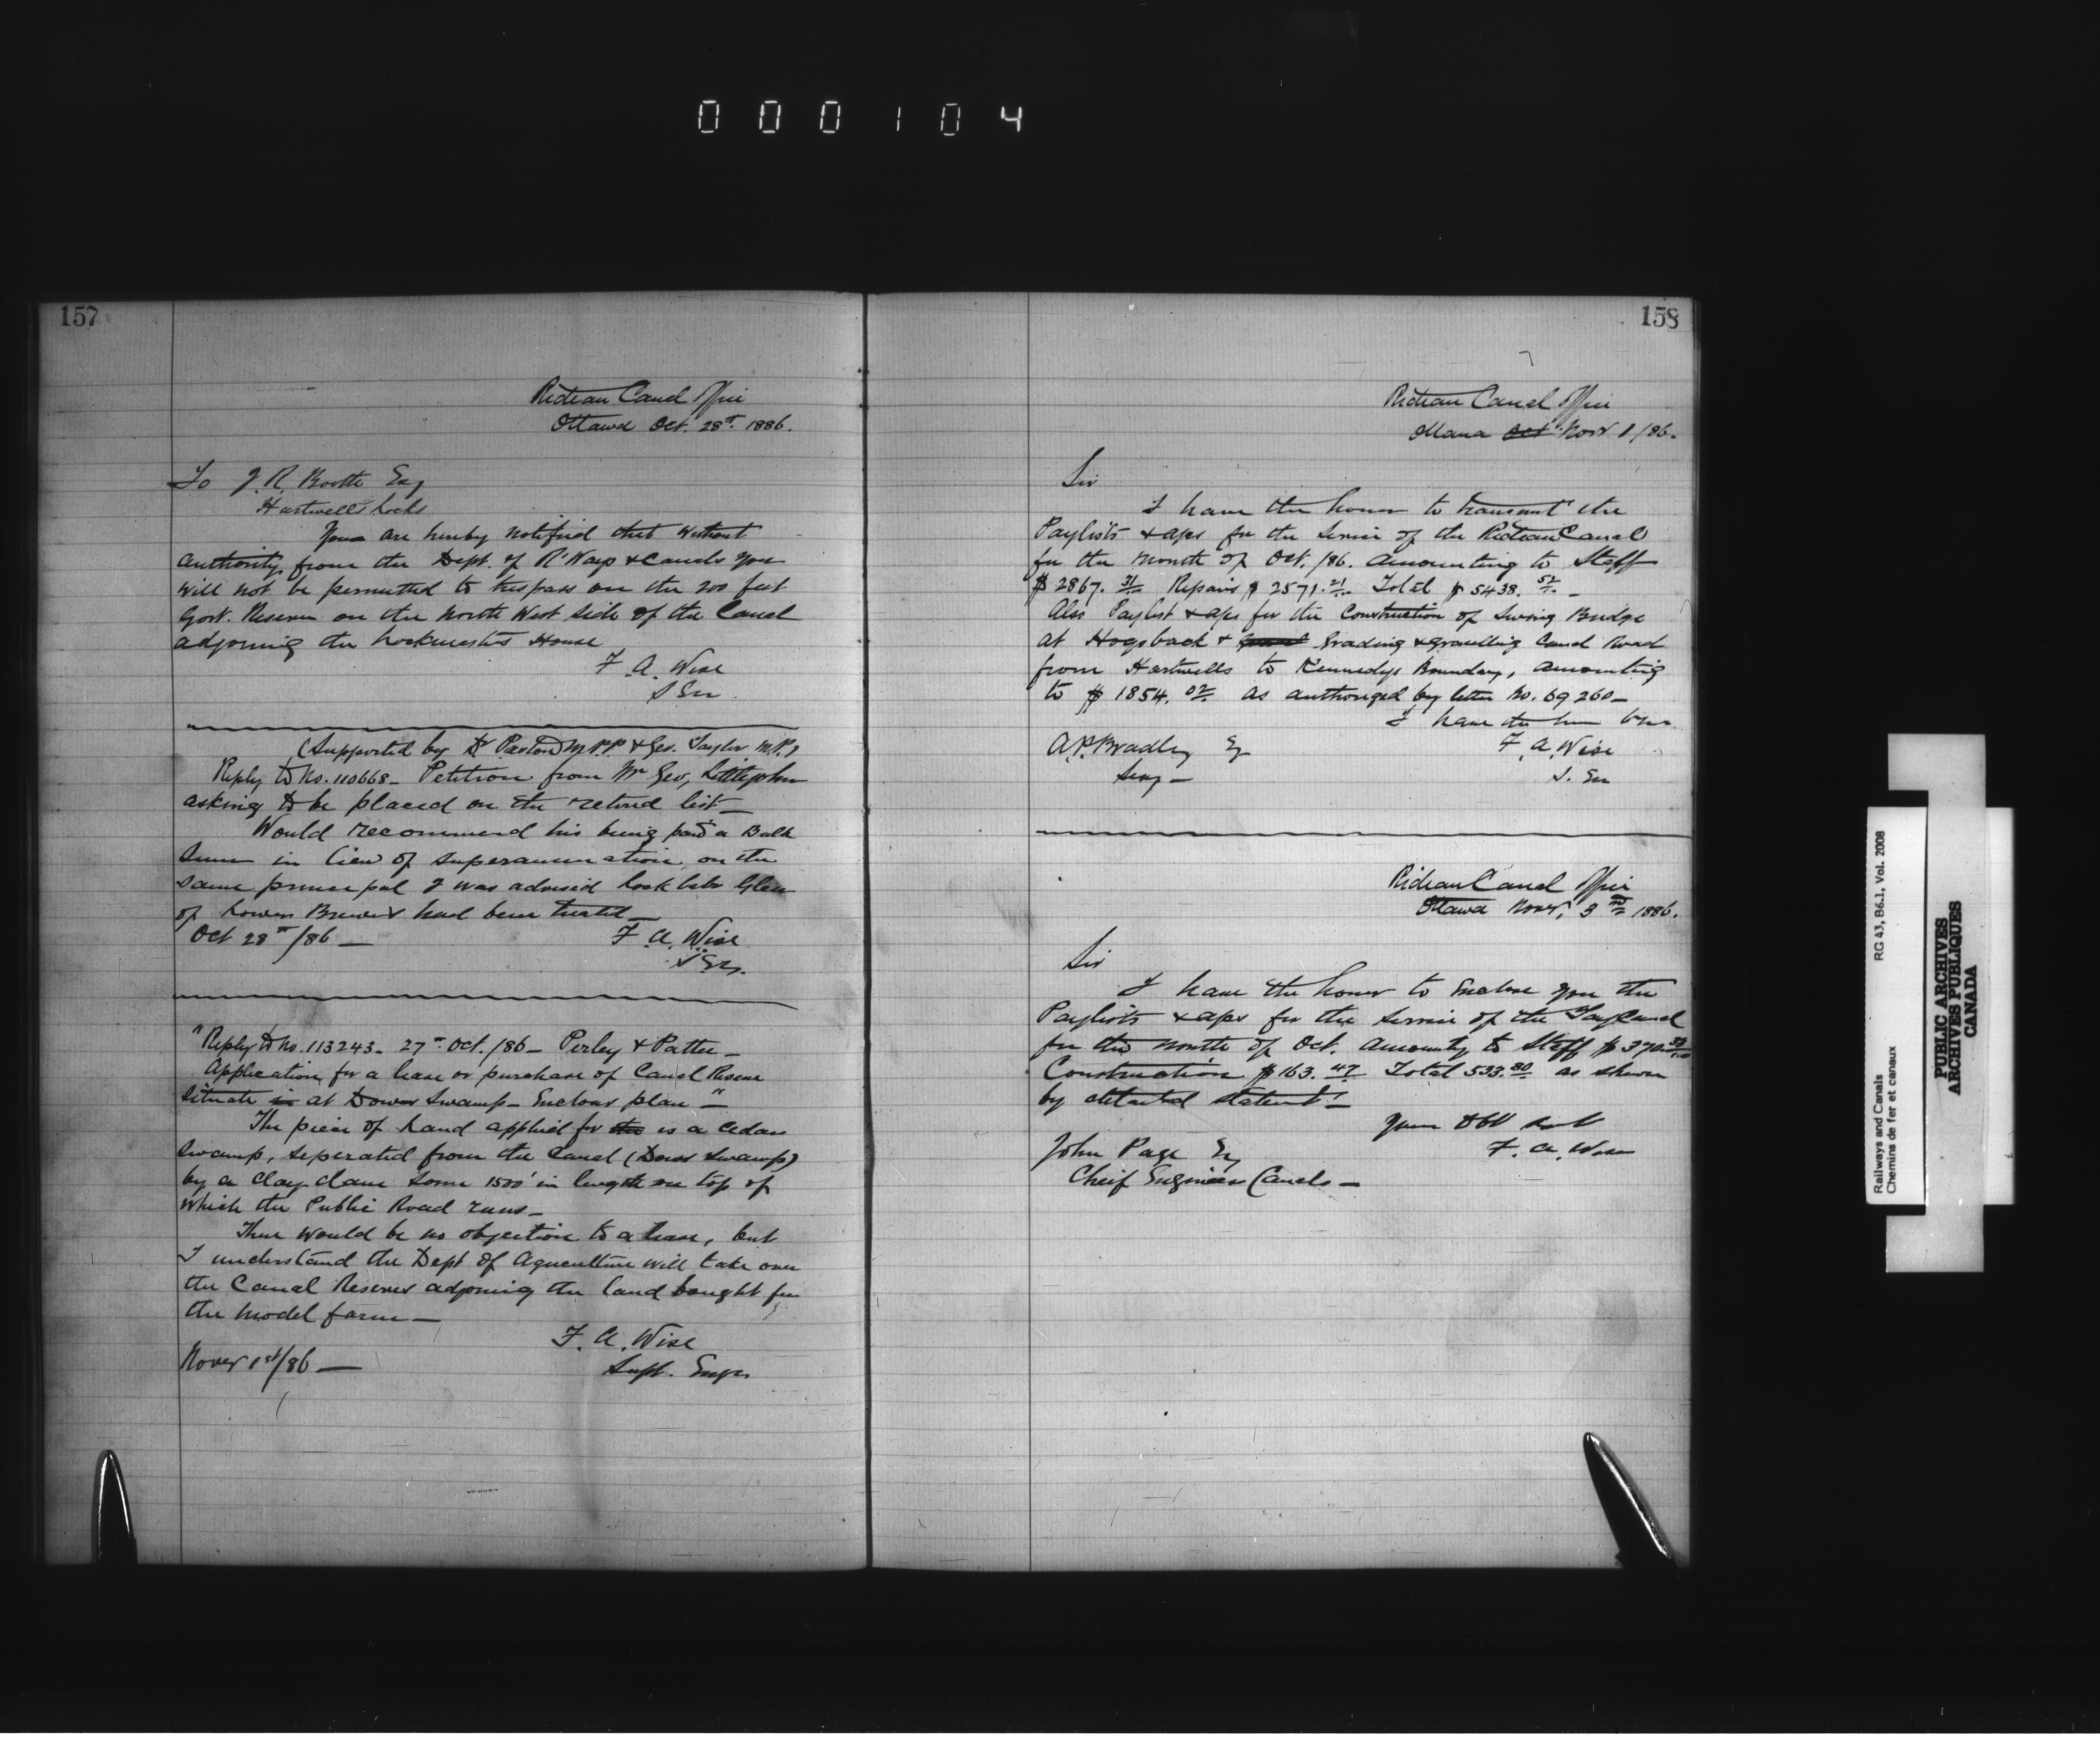 000104
157
Rideau Canal Office
Ottawa Oct. 28th 1886.
To J. R. Booth Esq
Hartwells Locks
You are hereby notified that without
authority from the Dept. of R'Ways & Canals you
will not be permitted to trespass on the 200 feet
Govt. Reserve on the North West side of the Canal
adjoining the Lockmaster's House
F. A. Wise
S. En
(Supported by Dr Preston M.P.P. & Geo. Taylor M.P.)
Reply to No. 110668 - Petition from Mr Geo. Littlejohn
asking to be placed on the retired list -
Would recommend his being paid a Bulk
Sum in lieu of superannuation, on the
same principal I was advised Lock Labr Glen
of Lower Brewers had been treated -
Oct 28th/86 -
F. A. Wise
S. En.
"Reply to No. 113243 - 27th Oct. /86 - Perley & Pattee -
Application for a lease or purchase of Canal Reserve
situate in at Dows Swamp - Enclous plan - "
The piece of Land applied for the is a Cedar
Swamp, seperated from the Canal (Dows Swamp)
by a Clay dam some 1500' in length on top of
which the Public Road runs -
There would be no objection to a lease, but
I understand the Dept of Agriculture will take over
the Canal Reserve adjoining the land bought for
the Model farm -
F. A. Wise
Supt. Engr
Novr 1st/86 -
158
Rideau Canal Office
Ottawa Oct Novr 1/86.
Sir
I have the honor to transmit the
Paylists & a/cs for the Service of the Rideau Canal
for the Month of Oct. /86. amounting to Staff
$2867.31 Repairs $2571.21 Total $5438.52 -
Also Paylist & a/cs for the Construction of Swing Bridge
at Hogsback & Grading & Gravelling Canal Road
from Hartwells to Kennedys Boundary, amounting
to $1854.02 as authorized by letter No. 69260 -
I have the honor
F. A. Wise
S. En
A. P. Bradley Esq
Secy -
Rideau Canal Office
Ottawa Novr. 3rd 1886.
Sir
I have the honor to Enclose you the
Paylists & a/cs for the service of the Tay Canal
for the month of Oct. amounting to Staff $370.33/100
Construction $163.47 Total 533.80 as shown
by detailed statemt -
Your Obt Servt
F. A. Wise
John Page Esq
Cheif Engineer Canals -
Railways and Canals
Chemins de fer et canaux
RG 43, B6.1, Vol. 2008
PUBLIC ARCHIVES
ARCHIVES PUBLIQUES
CANADA